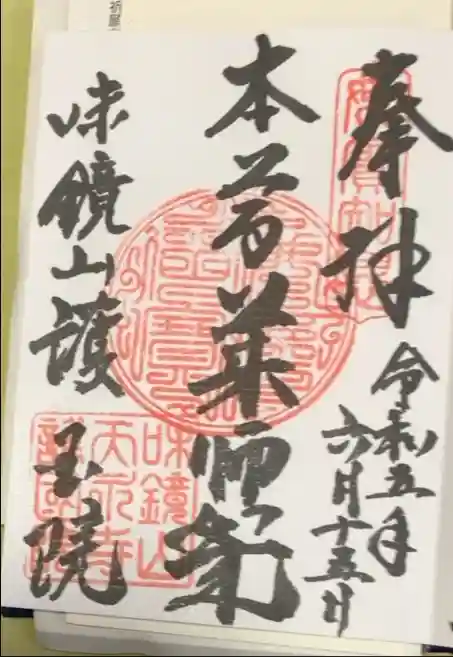 奉拝
令和五年
六月十五日
本尊薬師
味鏡山護国院
味鏡山
天永寺
護國院